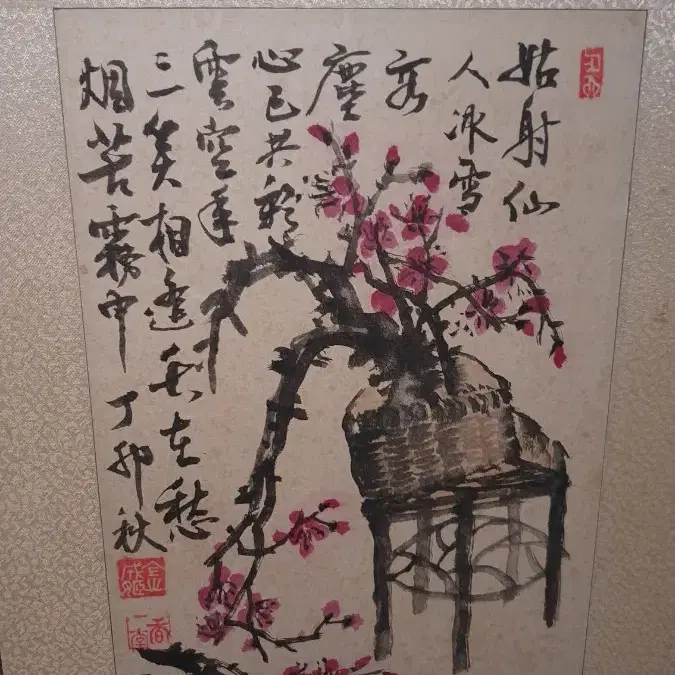 姑射仙
人冰雪
容
塵
心已共彩
雲空年
々一笑相逢長在愁
烟苦霧中 丁卯秋